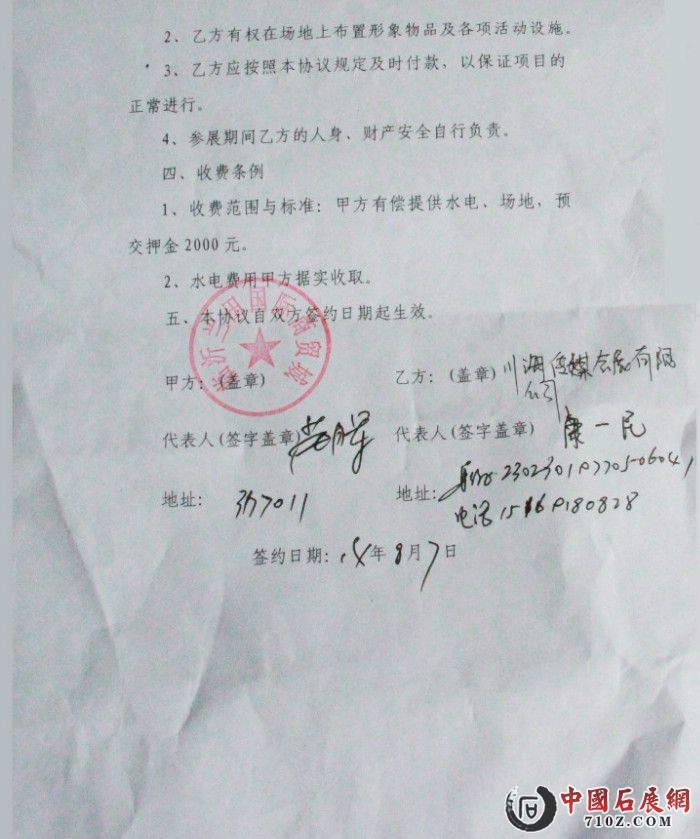 2、乙方有权在场地上布置形象物品及各项活动设施。
3、乙方应按照本协议规定及时付款，以保证项目的
正常进行。
4、参展期间乙方的人身、财产安全自行负责。
四、收费条例
1、收费范围与标准：甲方有偿提供水电、场地，预
交押金2000元。
2、水电费用甲方据实收取。
五、本协议自双方签约日期起生效。
临沂兰田国际商贸城
甲方：(盖章)
乙方：(盖章) 川海传媒会展有限
公司
代表人(签字盖章)
代表人(签字盖章) 康一民
地址：
地址：
电话
签约日期： 年8月7日
中國石展網
710Z.COM